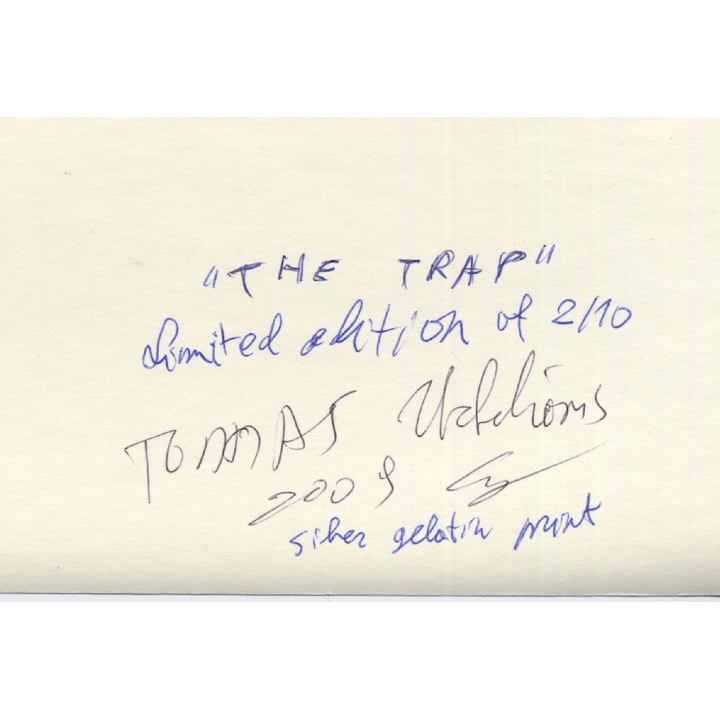 "THE TRAP"
Limited edition of 2/10
TOMAS
2009
silver gelatin print